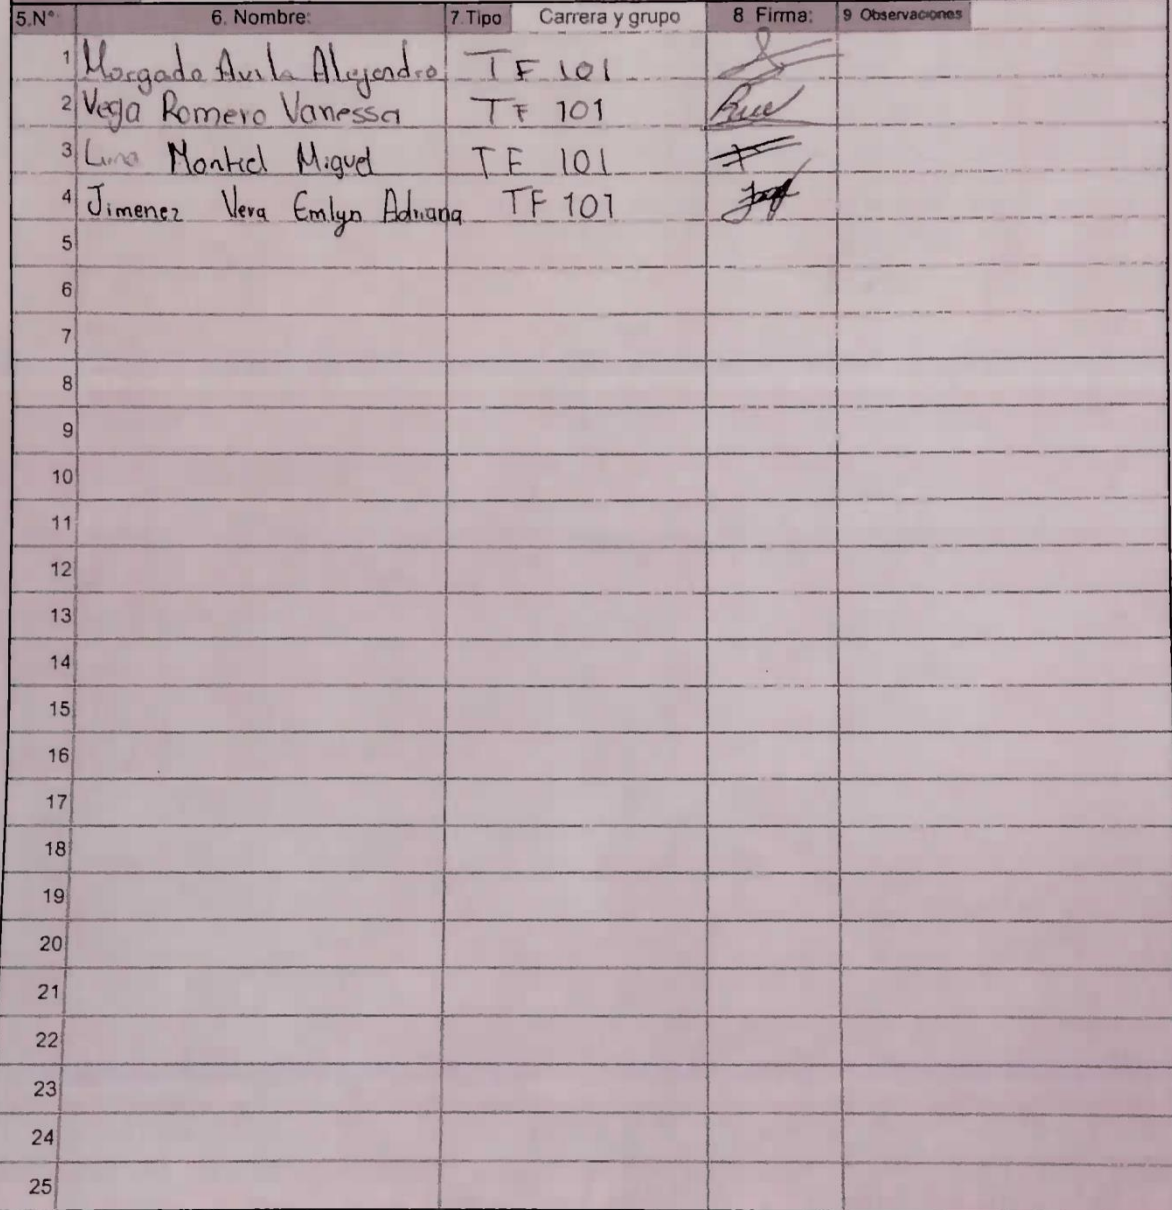 5.N° 6. Nombre: 7.Tipo Carrera y grupo 8 Firma: 9 Observaciones
1 Morgado Avila Alejandro TF 101
2 Vega Romero Vanessa TF 101
3 Luna Montiel Miguel TF 101
4 Jimenez Vera Emlyn Adriana TF 101
5
6
7
8
9
10
11
12
13
14
15
16
17
18
19
20
21
22
23
24
25